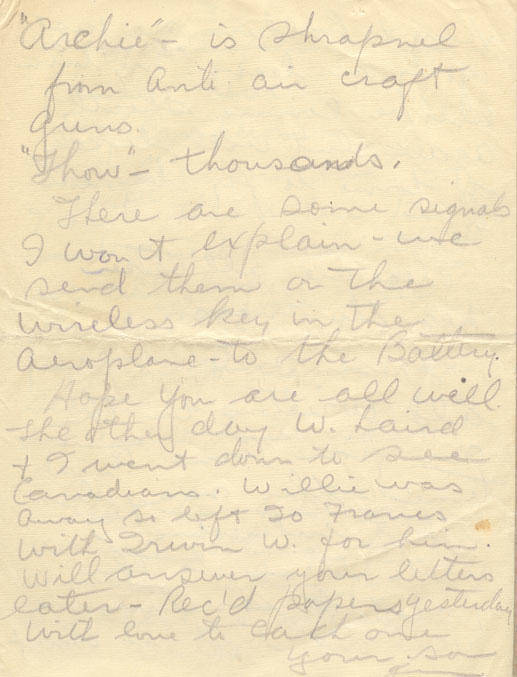 "Archie" - is shrapnel
from Anti air craft
guns.
"Thow" - thousands.
There are some signals
I won't explain - we
send them on the
wireless key in the
Aeroplane - to the Battery.
Hope you are all well.
The other day W. Laird
+ I went down to see
Canadians. Willie was
away so left 20 Francs
with Irwin W. for him.
Will answer your letters
later - Rec'd papers yesterday
With love to Each one
Your son